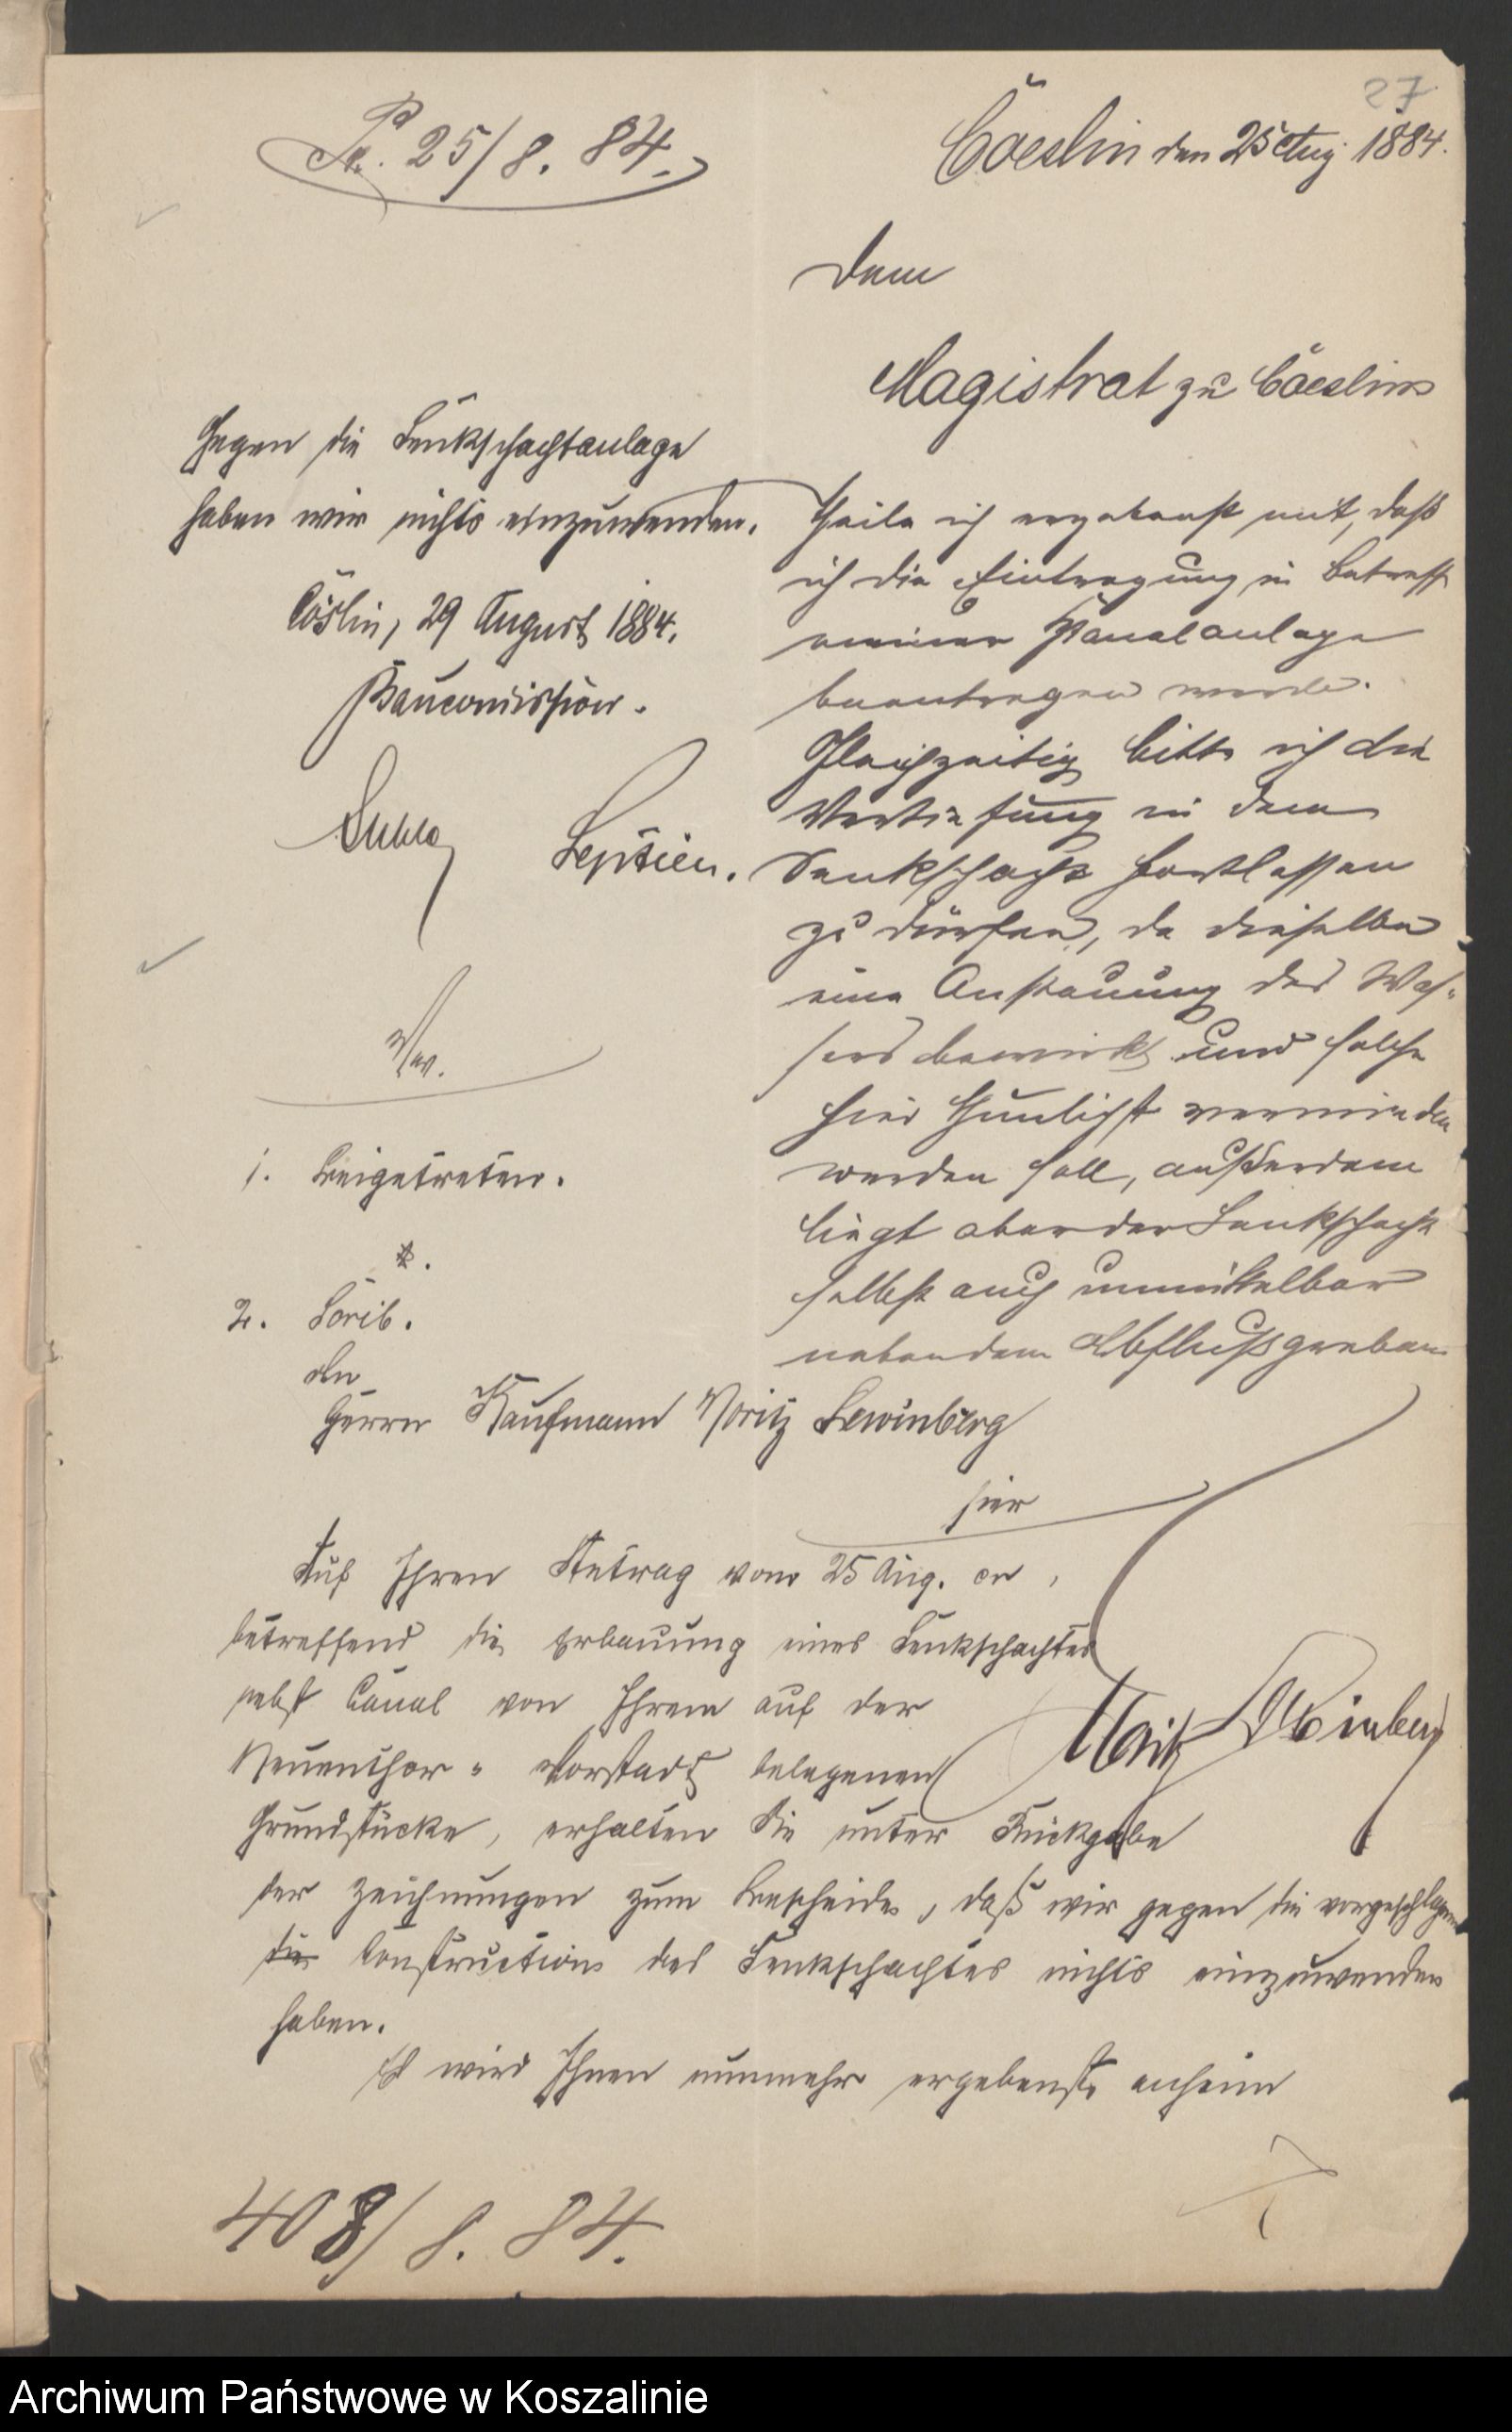 27
Pr. 25/8. 84.
Cöeslin den 25 Aug. 1884.
Dem
Magistrat zu Cöeslin
theile ich ergebenst mit, daß
ich die Eintragung in Betreff
meiner Kanalanlage
beantragen werde.
Gleichzeitig bitte ich die
Vertiefung in dem
Senkschacht fortlassen
zu dürfen, da dieselbe
eine Anstauung des Was-
sers bewirkt und solche
hier thunlichst vermieden
werden soll, außerdem
liegt aber der Senkschacht
selbst auch unmittelbar
neben dem Abflußgraben
Moritz Lewinberg
Gegen die Senkschachtanlage
haben wir nichts einzuwenden.
Cöslin, 29 August 1884.
Baucomission.
Lepsien.
Vfg.
1. Beigetreten.
2. Scrib.
An
Herrn Kaufmann Moritz Lewinberg
hier
Auf Ihren Antrag vom 25 Aug. cr,
betreffend die Erbauung eines Senkschachtes
nebst Canal von Ihrem auf der
Neuenthor-Vorstadt belegenen
Grundstücke, erhalten Sie unter Rückgabe
der Zeichnungen zum Bescheide, daß wir gegen die vorgeschlagene
die Construction des Senkschachtes nichts einzuwenden
haben.
Es wird Ihnen nunmehr ergebenst anheim
408/8. 84.
Archiwum Państwowe w Koszalinie